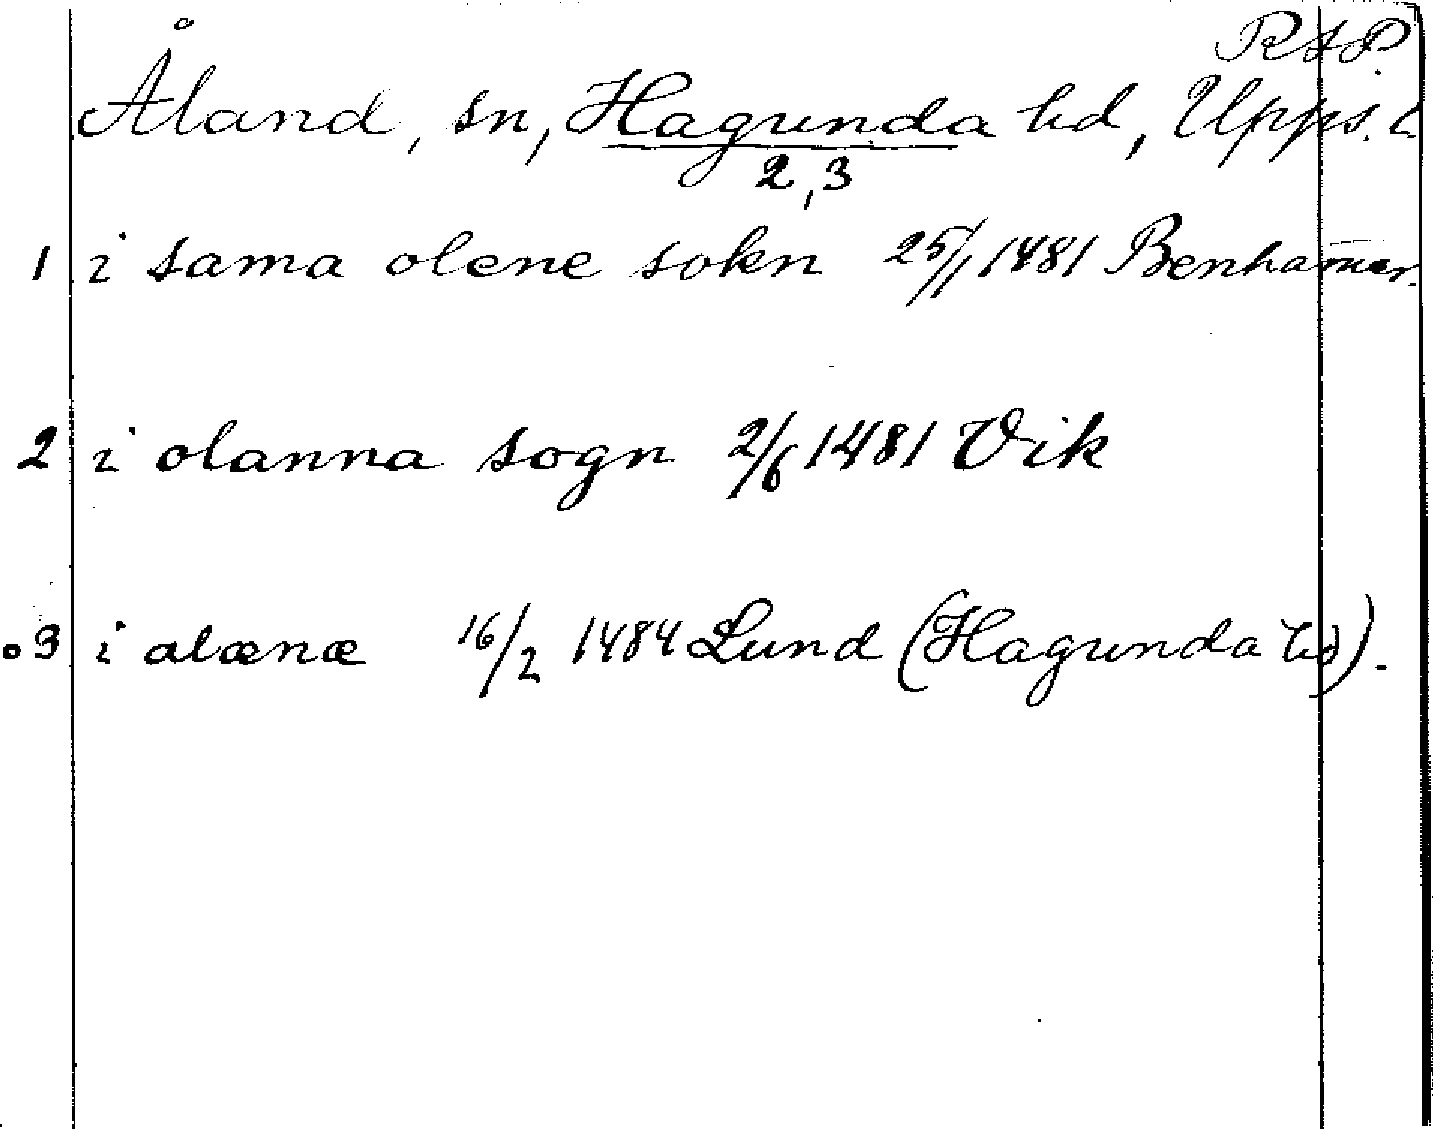 RAP.
Åland, sn, Hagunda hd, Upps. l
2, 3
1 i sama olene sokn 25/1 1481 Benhamar.
2 i olanna sogn 2/6 1481 Vik
3 i alænæ 16/2 1484 Lund (Hagunda hd).